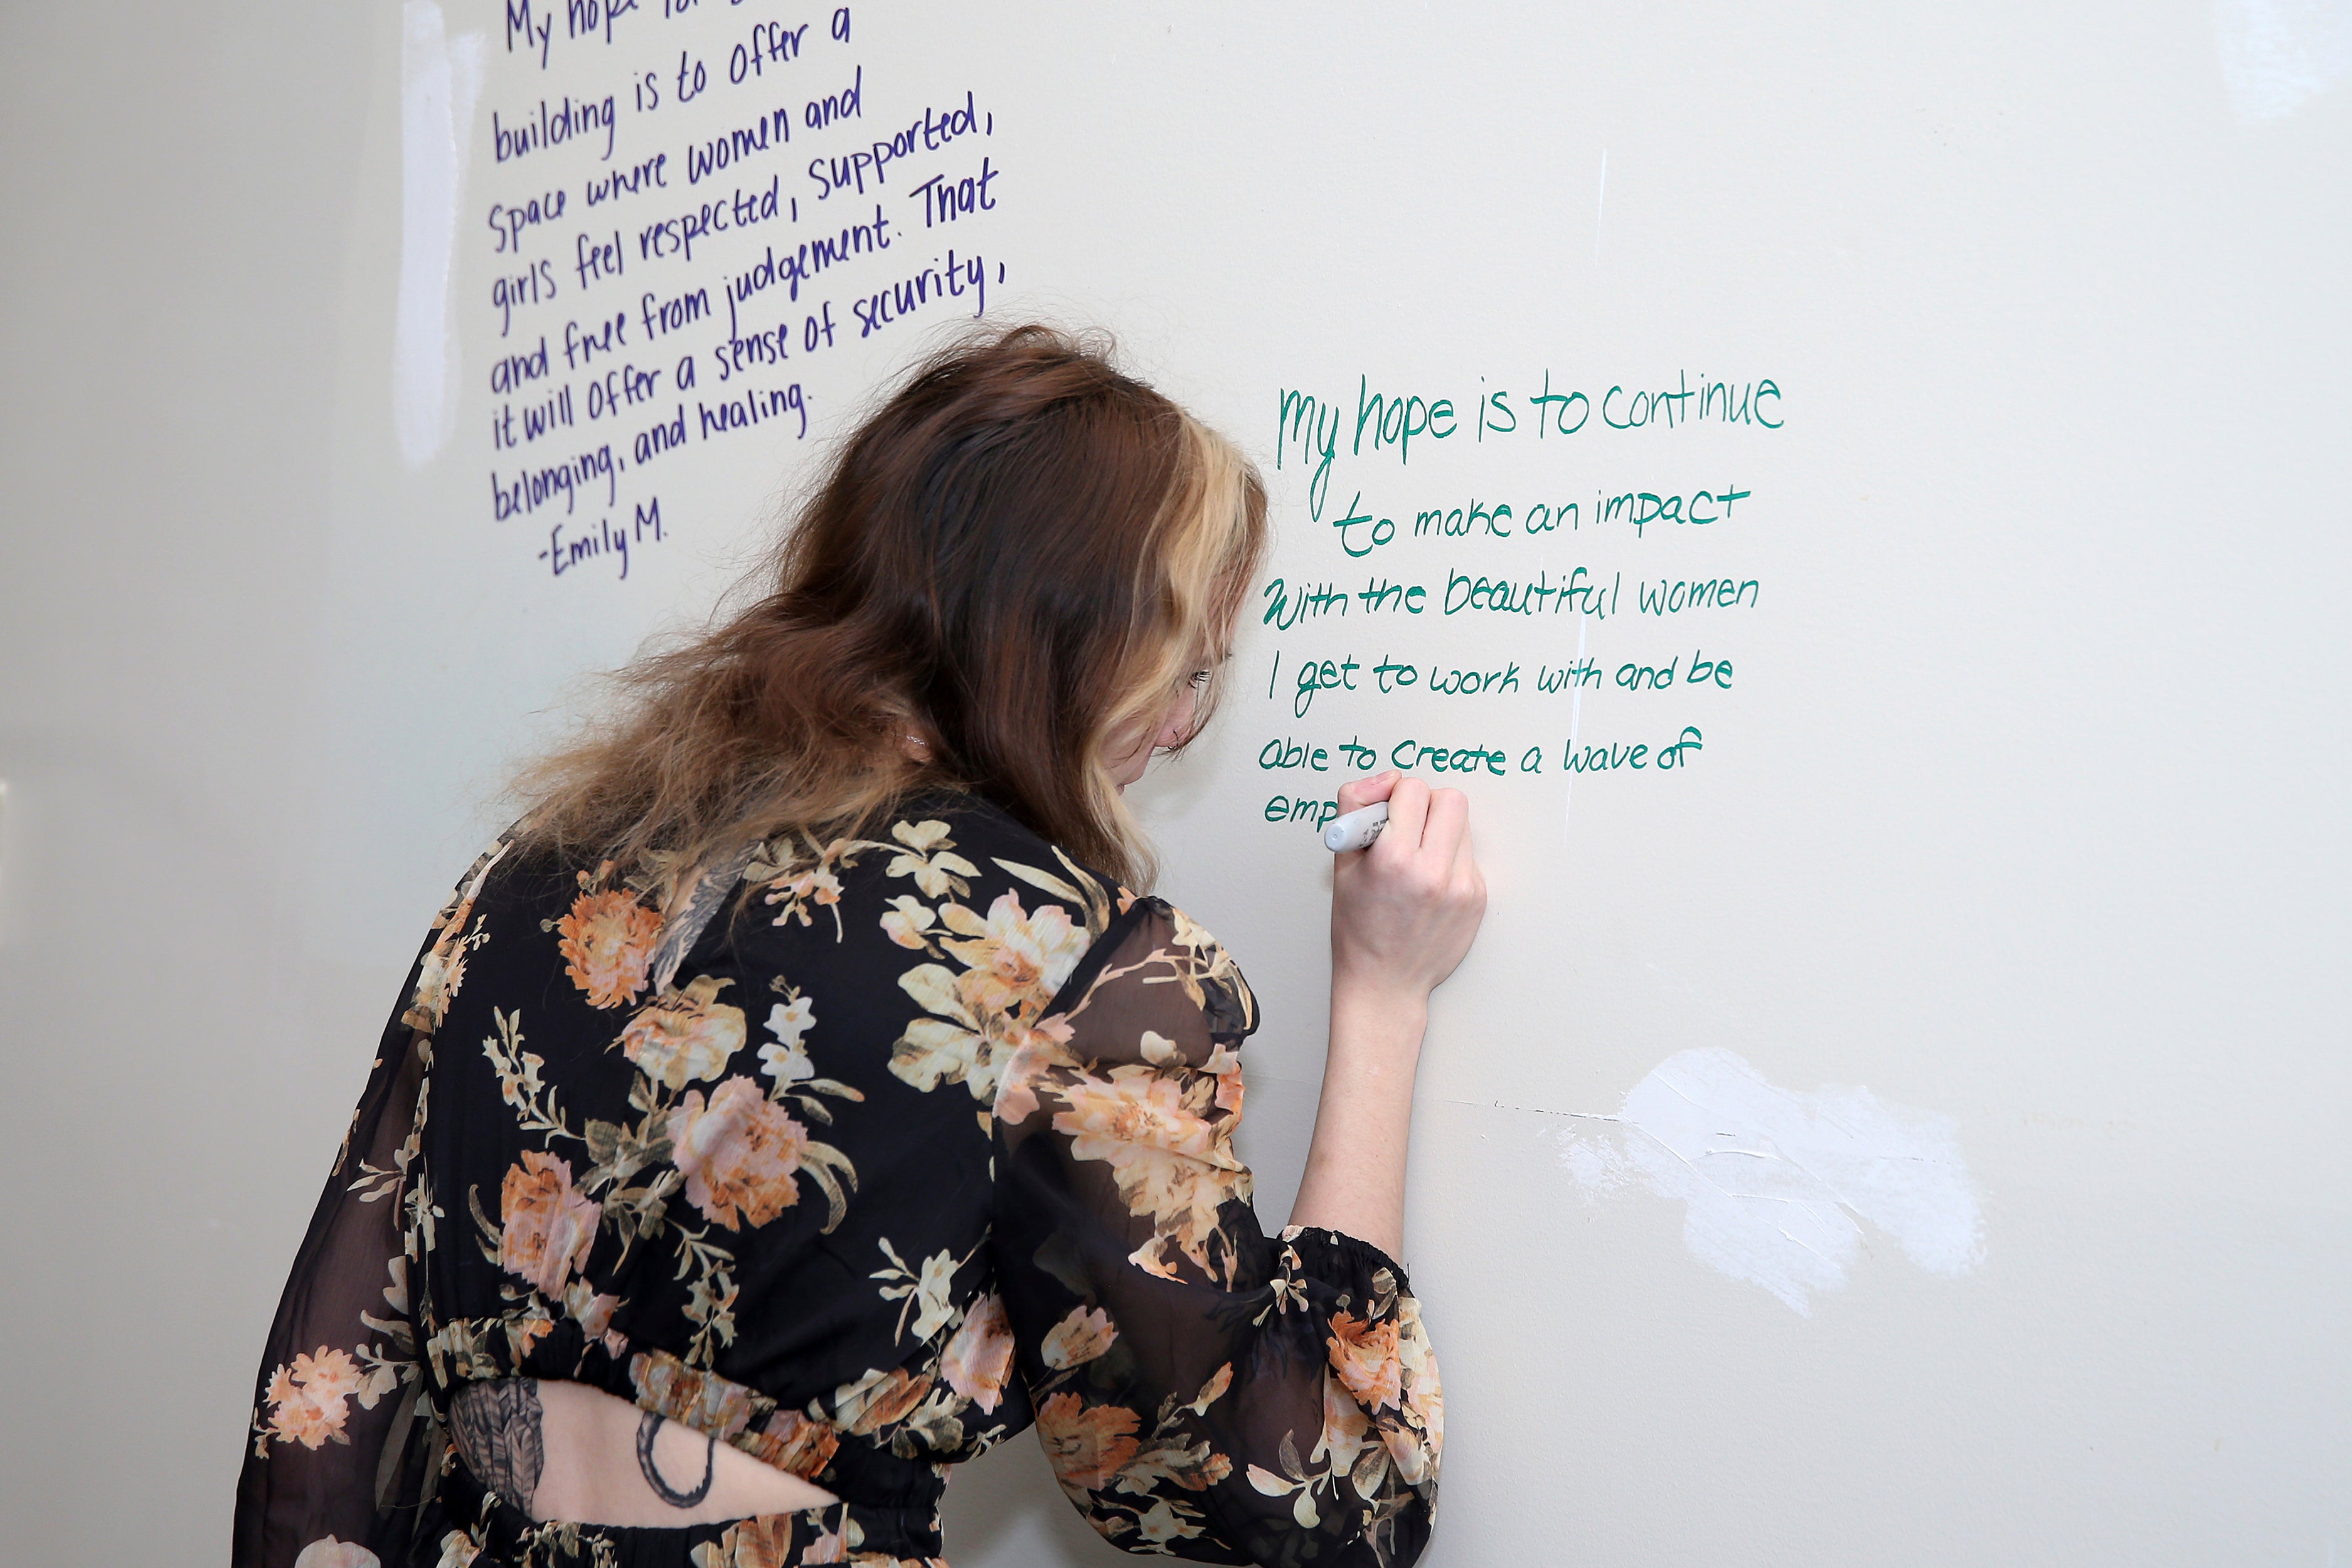 My hope for
building is to offer a
space where women and
girls feel respected, supported,
and free from judgement. That
it will offer a sense of security,
belonging, and healing.
-Emily M.
My hope is to continue
to make an impact
With the beautiful women
I get to work with and be
able to create a wave of
emp